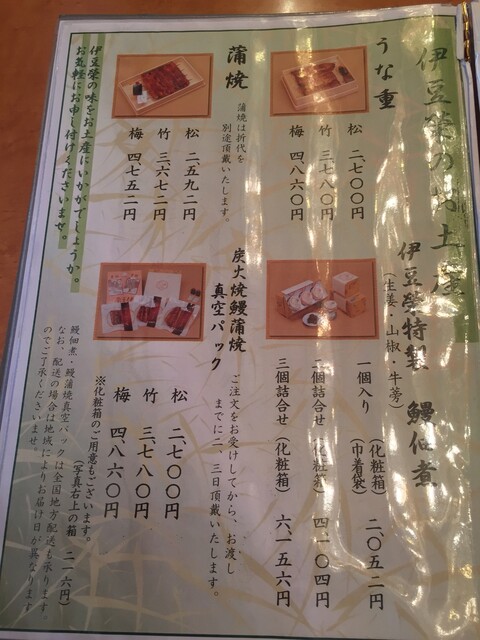 伊豆榮のお土産
うな重
松 二、七〇〇円
竹 三、七八〇円
梅 四、八六〇円
蒲焼
蒲焼は折代を
別途頂戴いたします。
松 二、五九二円
竹 三、六七二円
梅 四、七五二円
伊豆榮の味をお土産にいかがでしょうか。
お気軽にお申し付けくださいませ。
伊豆榮特製 鰻佃煮
(生姜・山椒・牛蒡)
一個入り (化粧箱) 二、〇五二円
(巾着袋)
二個詰合せ (化粧箱) 四、一〇四円
三個詰合せ (化粧箱) 六、一五六円
炭火焼鰻蒲焼
真空パック
ご注文をお受けしてから、お渡し
までに二、三日頂戴いたします。
松 二、七〇〇円
竹 三、七八〇円
梅 四、八六〇円
※化粧箱のご用意もございます。
(写真右上の箱 二一六円)
鰻佃煮・鰻蒲焼真空パックは全国地方配送も承ります。
なお、配送の場合は地域によりお届け日が異なります
のでご了承くださいませ。